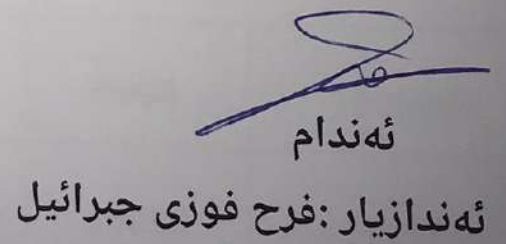 ئەندام
ئەندازیار :فرح فوزی جبرائیل